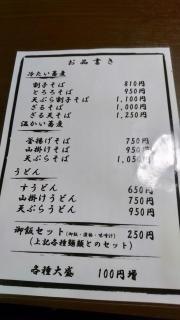 お品書き
冷たい蕎麦
割子そば 810円
とろろそば 950円
天ぷら割子そば 1,100円
ざる そば 1,000円
ざる天そば 1,250円
温かい蕎麦
釜揚げそば 750円
山掛けそば 950円
天ぷらそば 1,050円
うどん
すうどん 650円
山掛けうどん 750円
天ぷらうどん 950円
御飯セット(御飯・漬物・味噌汁) 250円
(上記各種麺類とのセット)
各種大盛 100円増